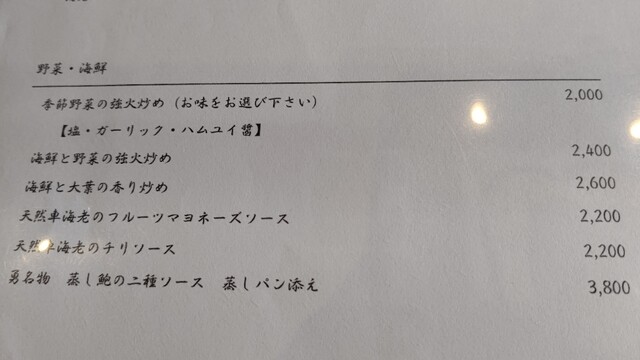 野菜・海鮮
季節野菜の強火炒め（お味をお選び下さい） 2,000
【塩・ガーリック・ハムユイ醤】
海鮮と野菜の強火炒め 2,400
海鮮と大葉の香り炒め 2,600
天然車海老のフルーツマヨネーズソース 2,200
天然車海老のチリソース 2,200
名物 蒸し鮑の二種ソース 蒸しパン添え 3,800